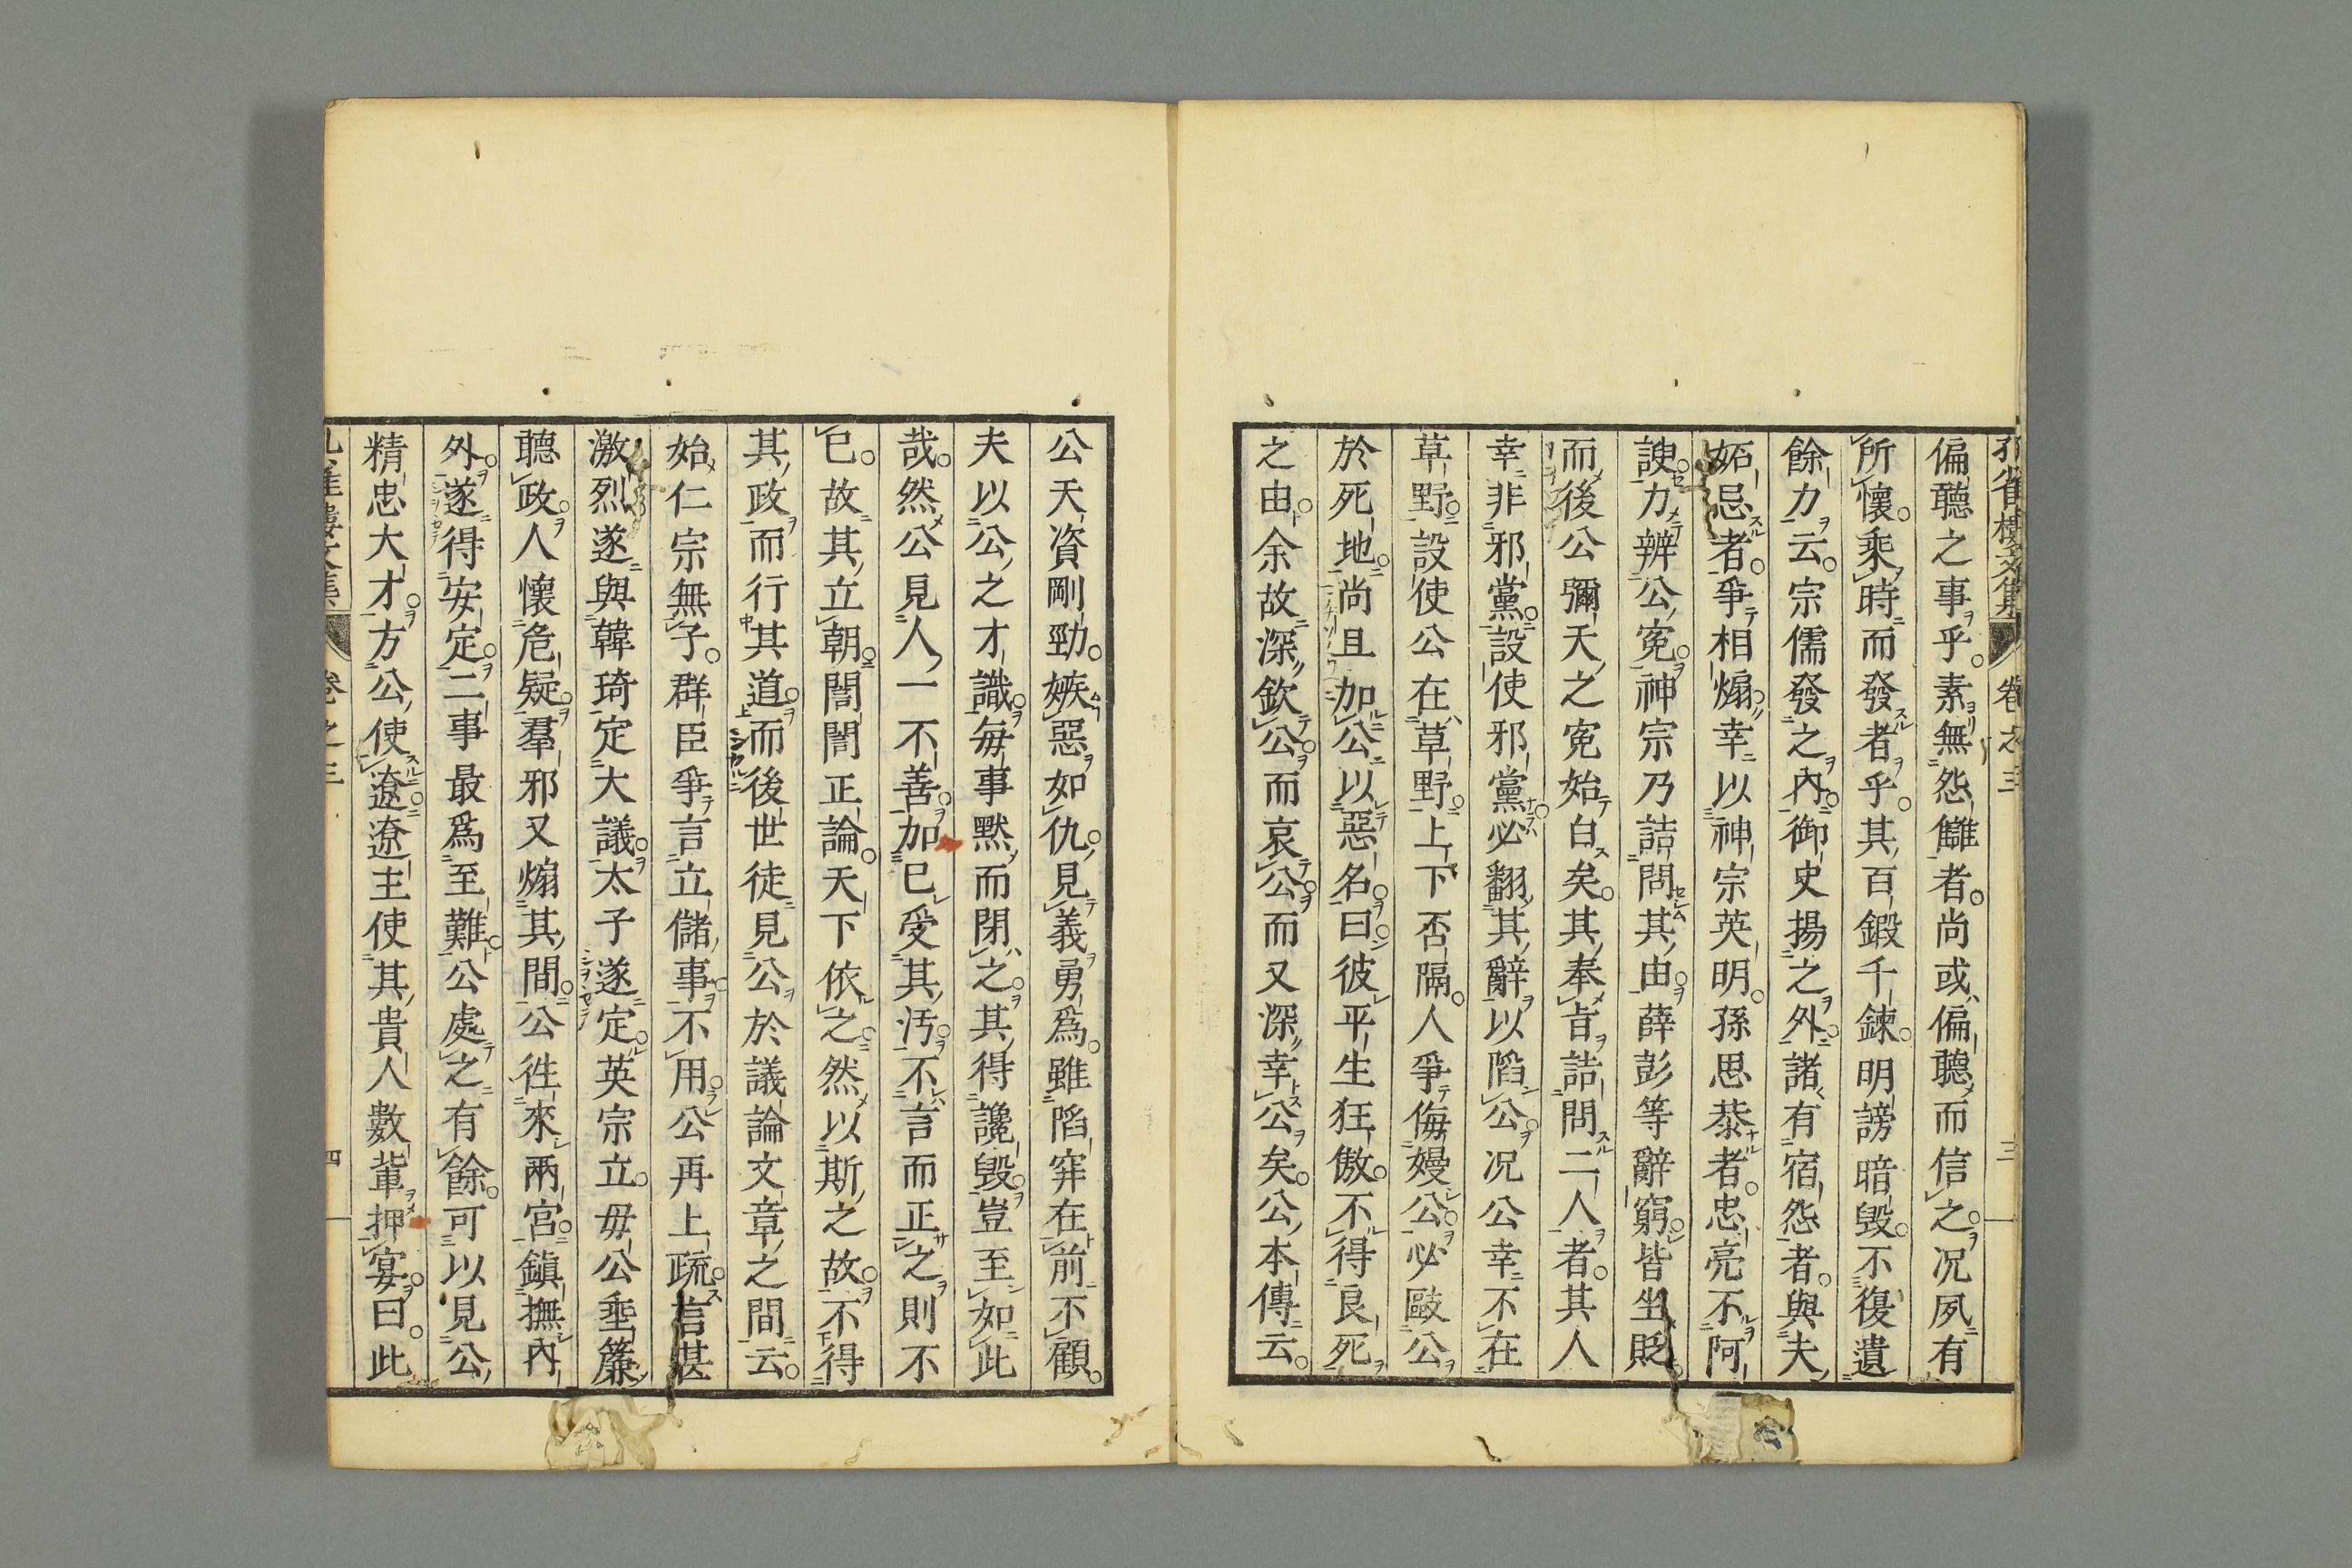 孔雀樓文集 卷之三 三
偏聽之事乎素無怨讎者尚或偏聽而信之况夙有
所懷乘時而發者乎其百鍛千鍊明謗暗毁不復遺
餘力云宗儒發之內御史揚之外諸有宿怨者與夫
妬忌者爭相煽幸以神宗英明孫思恭者忠亮不阿
諛力辨公寃神宗乃詰問其由薛彭等辭窮皆坐貶
而後公彌天之寃始白矣其奉旨詰問二人者其人
幸非邪黨設使邪黨必翻其辭以陷公况公幸不在
草野設使公在草野上下否隔人爭侮嫚公必毆公
於死地尚且加公以惡名曰彼平生狂傲不得良死
之由余故深欽公而哀公而又深幸公矣公本傳云
公天資剛勁嫉惡如仇見義勇爲雖陷穽在前不顧
夫以公之才識每事默而閉之其得讒毁豈至如此
哉然公見人一不善加已受其汚不言而正之則不
已故其立朝誾誾正論天下依之然以斯之故不得
其政而行其道而後世徒見公於議論文章之間云
始仁宗無子群臣爭言立儲事不用公再上疏言甚
激烈遂與韓琦定大議太子遂定英宗立毋公垂簾
聽政人懷危疑羣邪又煽其間公徃來兩宮鎭撫內
外遂得安定二事最爲至難公處之有餘可以見公
精忠大才方公使遼遼主使其貴人數輩押宴曰此
孔雀樓文集 卷之三 四